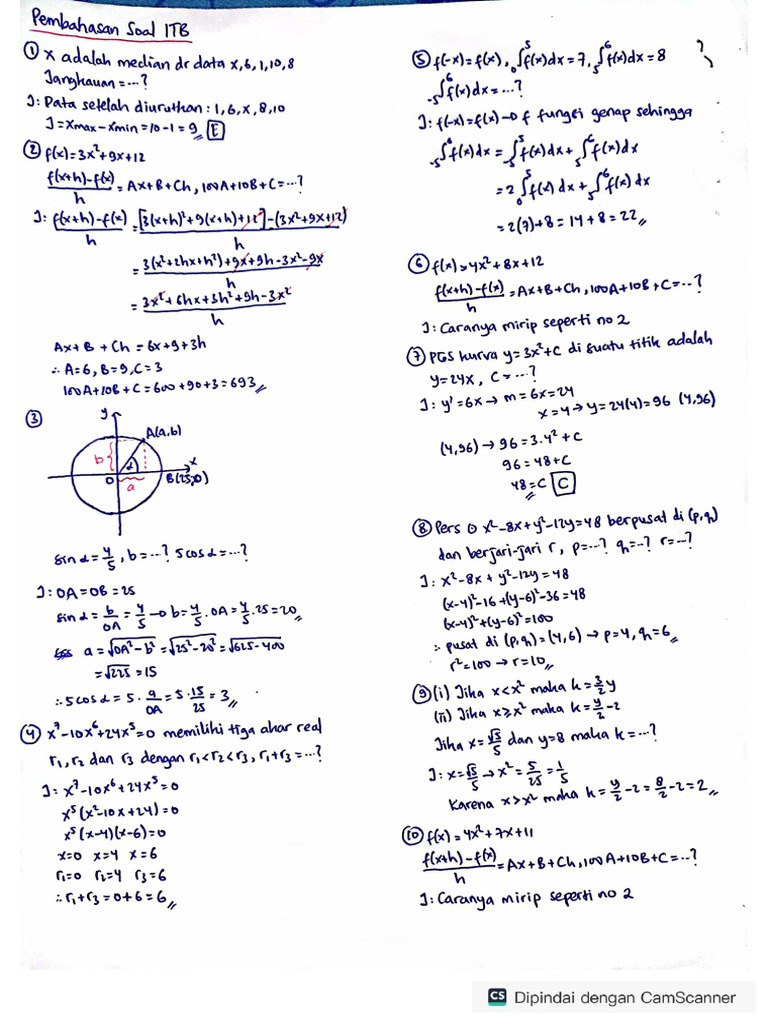 Pembahasan Soal ITB
① x adalah median dr data x,6,1,10,8
Jangkauan=...?
J: Data setelah diurutkan: 1,6,x,8,10
J=Xmax-Xmin=10-1=9 E
② f(x)=3x²+9x+12
(f(x+h)-f(x))/h = Ax+B+Ch, 100A+10B+C=...?
J: (f(x+h)-f(x))/h = ([3(x+h)²+9(x+h)+12]-(3x²+9x+12))/h
= (3(x²+2hx+h²)+9x+9h-3x²-9x)/h
= (3x²+6hx+3h²+9h-3x²)/h
Ax+B+Ch=6x+9+3h
∴ A=6, B=9, C=3
100A+10B+C=600+90+3=693
③ y
A(a,b)
b α x
O a B(25,0)
sin α=4/5, b=...? 5cosα=...?
J: OA=OB=25
sin α=b/OA=4/5→b=4/5.OA=4/5.25=20
a=√(OA²-b²)=√(25²-20²)=√(625-400)
=√225=15
∴5cosα=5.a/OA=5.15/25=3
④ x⁷-10x⁶+24x⁵=0 memiliki tiga akar real
r₁,r₂ dan r₃ dengan r₁<r₂<r₃, r₁+r₃=...?
J: x⁷-10x⁶+24x⁵=0
x⁵(x²-10x+24)=0
x⁵(x-4)(x-6)=0
x=0 x=4 x=6
r₁=0 r₂=4 r₃=6
∴r₁+r₃=0+6=6
⑤ f(-x)=f(x), ₀∫⁵f(x)dx=7, ₅∫⁶f(x)dx=8
₋₅∫⁶f(x)dx=...?
J: f(-x)=f(x)→f fungsi genap sehingga
₋₅∫⁶f(x)dx=₋₅∫⁵f(x)dx+₅∫⁶f(x)dx
=2₀∫⁵f(x)dx+₅∫⁶f(x)dx
=2(7)+8=14+8=22
⑥ f(x)=4x²+8x+12
(f(x+h)-f(x))/h=Ax+B+Ch, 100A+10B+C=...?
J: Caranya mirip seperti no 2
⑦ PGS kurva y=3x²+c di suatu titik adalah
y=24x, C=...?
J: y'=6x→m=6x=24
x=4→y=24(4)=96 (4,96)
(4,96)→96=3.4²+C
96=48+C
48=C C
⑧ Pers O x²-8x+y²-12y=48 berpusat di (p,q)
dan berjari-jari r, p=...? q=...? r=...?
J: x²-8x+y²-12y=48
(x-4)²-16+(y-6)²-36=48
(x-4)²+(y-6)²=100
∴ pusat di (p,q)=(4,6)→p=4,q=6
r²=100→r=10
⑨ (i) Jika x<x² maka k=3/2 y
(ii) Jika x≥x² maka k=y/2-2
Jika x=√5/5 dan y=8 maka k=...?
J: x=√5/5→x²=5/25=1/5
Karena x>x² maka k=y/2-2=8/2-2=2
⑩ f(x)=4x²+7x+11
(f(x+h)-f(x))/h=Ax+B+Ch, 100A+10B+C=...?
J: Caranya mirip seperti no 2
CS Dipindai dengan CamScanner